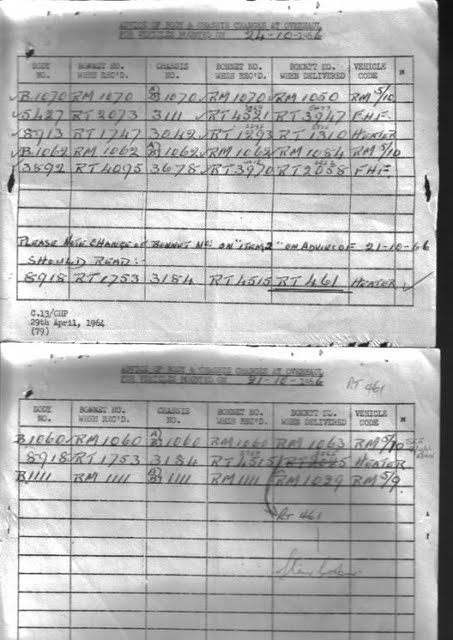 ADVICE OF BODY & CHASSIS CHANGES AT OVERHAUL
FOR VEHICLES MOUNTED ON 24-10-1966
BODY NO. BONNET NO. WHEN REC'D. CHASSIS NO. BONNET NO. WHEN REC'D. BONNET NO. WHEN DELIVERED VEHICLE CODE
B.1070 RM 1070 A/B 1070 RM 1070 RM 1050 RM 5/10
5427 RT 2073 3111 RT 4521 RT 3947 F.H.F.
8913 RT 1747 3042 RT 1293 RT 1310 HEATER
B.1062 RM 1062 A/B 1062 RM 1062 RM 1084 RM 5/10
3892 RT 4095 3678 RT 3970 RT 2058 F.H.F
PLEASE NOTE CHANGE OF BONNET NO. ON "ITEM 2" ON ADVICE OF 21-10-66
SHOULD READ:-
8918 RT 1753 3184 RT 4515 RT 461 HEATER
G.13/GHP
29th April, 1964
(79)
ADVICE OF BODY & CHASSIS CHANGES AT OVERHAUL
FOR VEHICLES MOUNTED ON 21-10-1966
RT 461
BODY NO. BONNET NO. WHEN REC'D. CHASSIS NO. BONNET NO. WHEN REC'D. BONNET NO. WHEN DELIVERED VEHICLE CODE
B1060 RM 1060 A/B 1060 RM 1060 RM 1063 RM 5/10
8918 RT 1753 3184 RT 4515 HEATER
B1111 RM 1111 A/B 1111 RM 1111 RM 1029 RM 5/9
RT 461